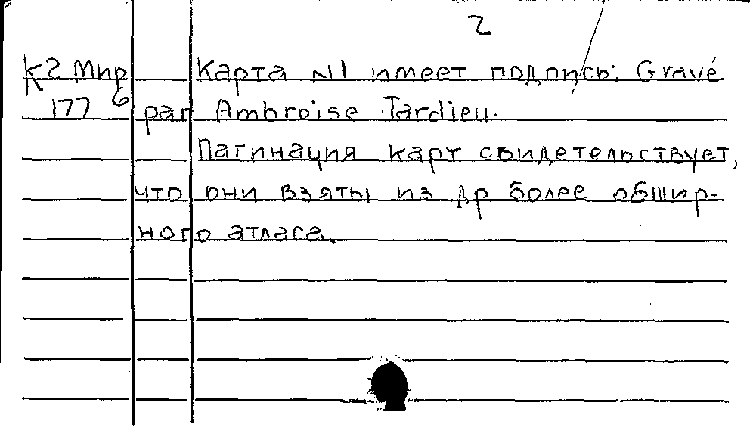 2
К2 Мир Карта №1 имеет подпись: Gravé
177 6 par Ambroise Tardieu.
Пагинация карт свидетельствует,
что они взяты из др более обшир-
ного атласа.